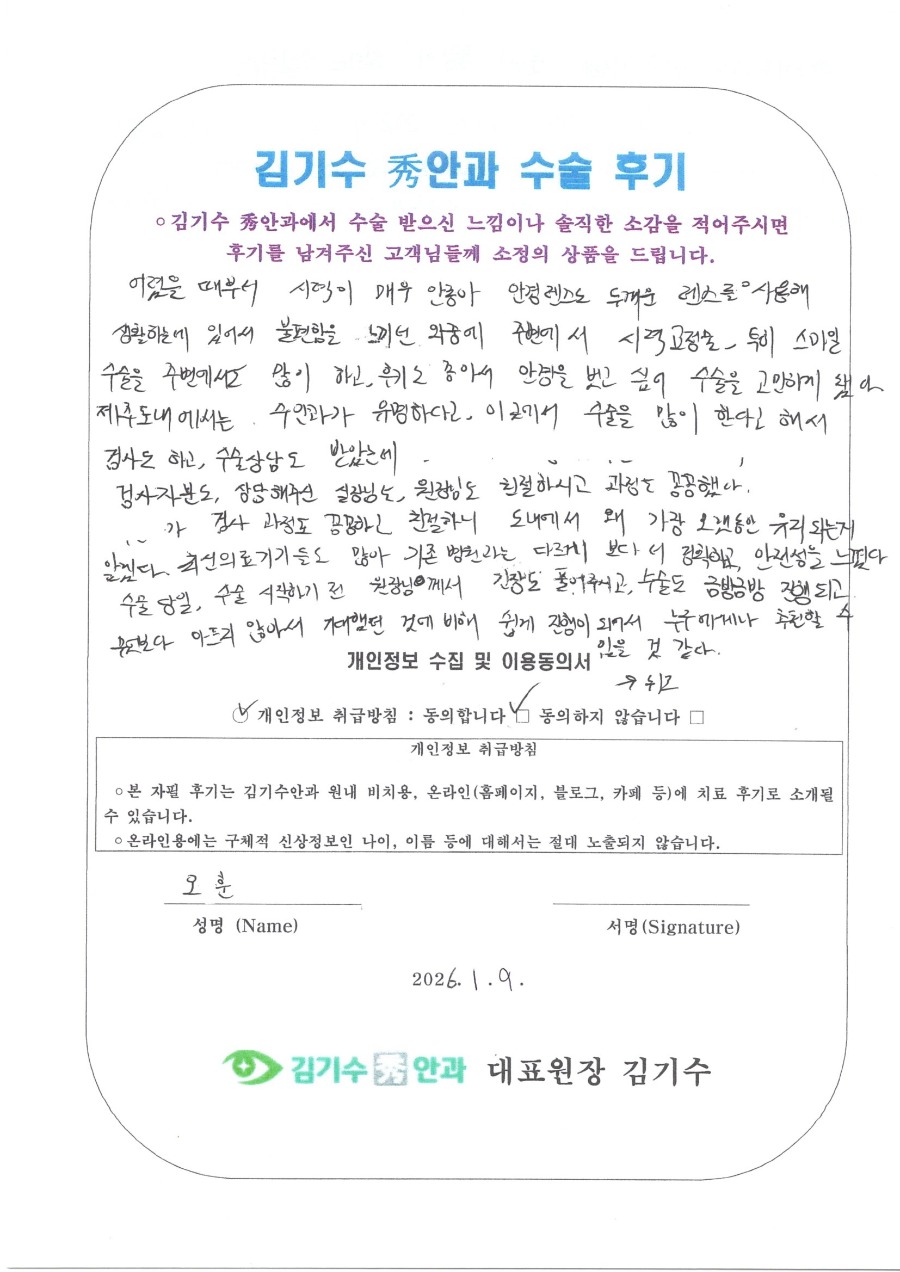 김기수 秀안과 수술 후기
○ 김기수 秀안과에서 수술 받으신 느낌이나 솔직한 소감을 적어주시면
후기를 남겨주신 고객님들께 소정의 상품을 드립니다.
어렸을 때부터 시력이 매우 안좋아 안경렌즈도 두꺼운 렌즈를 사용해
생활하는데 있어서 불편함을 느끼던 와중에 주변에서 시력교정술, 특히 스마일
수술을 주변에서도 많이 하고, 후기도 좋아서 안경을 벗고 싶어 수술을 고민하게 됐다
제주도내에서는 수안과가 유명하다고, 이곳에서 수술을 많이 한다고 해서
검사도 하고, 수술상담도 받았는데
검사자분도, 상담해주신 실장님도, 원장님도 친절하시고 과정도 꼼꼼했다.
가 검사 과정도 꼼꼼하고 친절하니 도내에서 왜 가장 오랫동안 유지되는지
알겠다. 최신의료기기들도 많아 기존 병원과는 다르게 보다 더 정확하고, 안전성을 느꼈다
수술 당일, 수술 시작하기 전 원장님께서 긴장도 풀어주시고, 수술도 금방금방 진행되고
무엇보다 아프지 않아서 기대했던 것에 비해 쉽게 진행이 되어서 누구에게나 추천할 수
있을 것 같다.
개인정보 수집 및 이용동의서
→ 쉬고
개인정보 취급방침 : 동의합니다 □ 동의하지 않습니다 □
개인정보 취급방침
○ 본 자필 후기는 김기수안과 원내 비치용, 온라인(홈페이지, 블로그, 카페 등)에 치료 후기로 소개될
수 있습니다.
○ 온라인용에는 구체적 신상정보인 나이, 이름 등에 대해서는 절대 노출되지 않습니다.
오 훈
성명 (Name) 서명(Signature)
2026. 1. 9.
김기수 秀 안과 대표원장 김기수